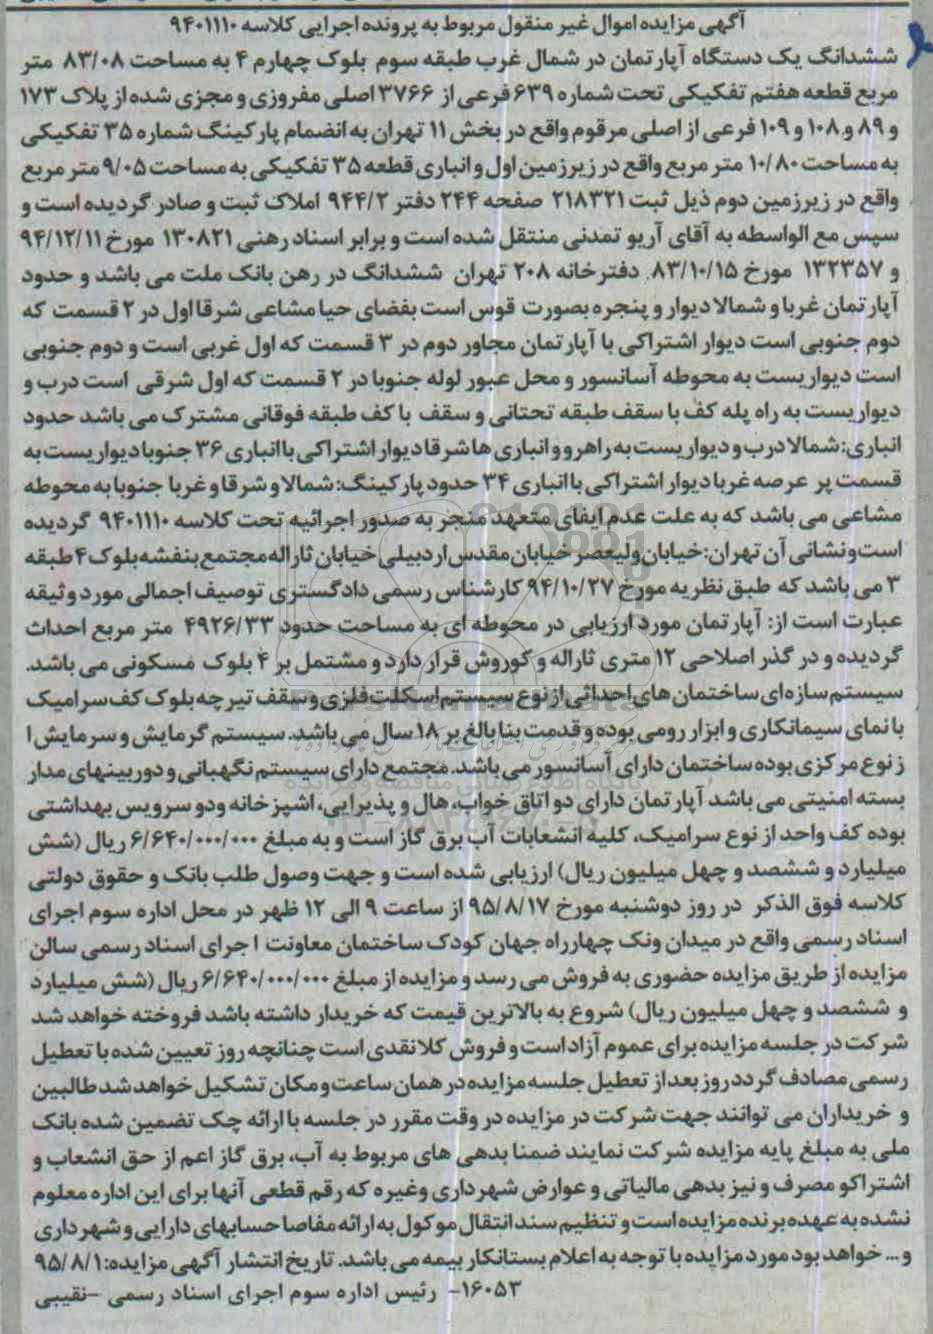 آگهی مزایده اموال غیر منقول مربوط به پرونده اجرایی کلاسه ۹۴۰۱۱۱۰
ششدانگ یک دستگاه آپارتمان در شمال غرب طبقه سوم بلوک چهارم ۴ به مساحت ۸۳/۰۸ متر
مربع قطعه هفتم تفکیکی تحت شماره ۶۳۹ فرعی از ۳۷۶۶ اصلی مفروزی و مجزی شده از پلاک ۱۷۳
و ۸۹ و ۱۰۸ و ۱۰۹ فرعی از اصلی مرقوم واقع در بخش ۱۱ تهران به انضمام پارکینگ شماره ۳۵ تفکیکی
به مساحت ۱۰/۸۰ متر مربع واقع در زیرزمین اول و انباری قطعه ۳۵ تفکیکی به مساحت ۹/۰۵ متر مربع
واقع در زیرزمین دوم ذیل ثبت ۲۱۸۳۲۱ صفحه ۲۴۴ دفتر ۹۴۴/۲ املاک ثبت و صادر گردیده است و
سپس مع الواسطه به آقای آریو تمدنی منتقل شده است و برابر اسناد رهنی ۱۳۰۸۲۱ مورخ ۹۴/۱۲/۱۱
و ۱۳۲۳۵۷ مورخ ۸۳/۱۰/۱۵ دفترخانه ۲۰۸ تهران ششدانگ در رهن بانک ملت می باشد و حدود
آپارتمان غربا و شمالا دیوار و پنجره بصورت قوس است بفضای حیا مشاعی شرقا اول در ۲ قسمت که
دوم جنوبی است دیوار اشتراکی با آپارتمان مجاور دوم در ۳ قسمت که اول غربی است و دوم جنوبی
است دیواریست به محوطه آسانسور و محل عبور لوله جنوبا در ۲ قسمت که اول شرقی است درب و
دیواریست به راه پله کف با سقف طبقه تحتانی و سقف با کف طبقه فوقانی مشترک می باشد حدود
انباری: شمالا درب و دیواریست به راهرو و انباری ها شرقا دیوار اشتراکی با انباری ۳۶ جنوبا دیواریست به
قسمت پر عرصه غربا دیوار اشتراکی با انباری ۳۴ حدود پارکینگ: شمالا و شرقا و غربا جنوبا به محوطه
مشاعی می باشد که به علت عدم ایفای متعهد منجر به صدور اجرائیه تحت کلاسه ۹۴۰۱۱۱۰ گردیده
است و نشانی آن تهران: خیابان ولیعصر خیابان مقدس اردبیلی خیابان ثاراله مجتمع بنفشه بلوک ۴ طبقه
۳ می باشد که طبق نظریه مورخ ۹۴/۱۰/۲۷ کارشناس رسمی دادگستری توصیف اجمالی مورد وثیقه
عبارت است از: آپارتمان مورد ارزیابی در محوطه ای به مساحت حدود ۴۹۲۶/۳۳ متر مربع احداث
گردیده و در گذر اصلاحی ۱۲ متری ثاراله و کوروش قرار دارد و مشتمل بر ۴ بلوک مسکونی می باشد.
سیستم سازه ای ساختمان های احداثی از نوع سیستم اسکلت فلزی و سقف تیرچه بلوک کف سرامیک
با نمای سیمانکاری و ابزار رومی بوده و قدمت بنا بالغ بر ۱۸ سال می باشد. سیستم گرمایش و سرمایش ا
ز نوع مرکزی بوده ساختمان دارای آسانسور می باشد. مجتمع دارای سیستم نگهبانی و دوربینهای مدار
بسته امنیتی می باشد آپارتمان دارای دو اتاق خواب، هال و پذیرایی، اشپزخانه ودو سرویس بهداشتی
بوده کف واحد از نوع سرامیک، کلیه انشعابات آب برق گاز است و به مبلغ ۶/۶۴۰/۰۰۰/۰۰۰ ریال (شش
میلیارد و ششصد و چهل میلیون ریال) ارزیابی شده است و جهت وصول طلب بانک و حقوق دولتی
کلاسه فوق الذکر در روز دوشنبه مورخ ۹۵/۸/۱۷ از ساعت ۹ الی ۱۲ ظهر در محل اداره سوم اجرای
اسناد رسمی واقع در میدان ونک چهارراه جهان کودک ساختمان معاونت اجرای اسناد رسمی سالن
مزایده از طریق مزایده حضوری به فروش می رسد و مزایده از مبلغ ۶/۶۴۰/۰۰۰/۰۰۰ ریال (شش میلیارد
و ششصد و چهل میلیون ریال) شروع به بالاترین قیمت که خریدار داشته باشد فروخته خواهد شد
شرکت در جلسه مزایده برای عموم آزاد است و فروش کلا نقدی است چنانچه روز تعیین شده با تعطیل
رسمی مصادف گردد روز بعد از تعطیل جلسه مزایده در همان ساعت و مکان تشکیل خواهد شد طالبین
و خریداران می توانند جهت شرکت در مزایده در وقت مقرر در جلسه با ارائه چک تضمین شده بانک
ملی به مبلغ پایه مزایده شرکت نمایند ضمنا بدهی های مربوط به آب، برق گاز اعم از حق انشعاب و
اشتراکو مصرف و نیز بدهی مالیاتی و عوارض شهرداری وغیره که رقم قطعی آنها برای این اداره معلوم
نشده به عهده برنده مزایده است و تنظیم سند انتقال موکول به ارائه مفاصا حسابهای دارایی و شهرداری
و... خواهد بود مورد مزایده با توجه به اعلام بستانکار بیمه می باشد. تاریخ انتشار آگهی مزایده: ۹۵/۸/۱
۱۶۰۵۳- رئیس اداره سوم اجرای اسناد رسمی -نقیبی